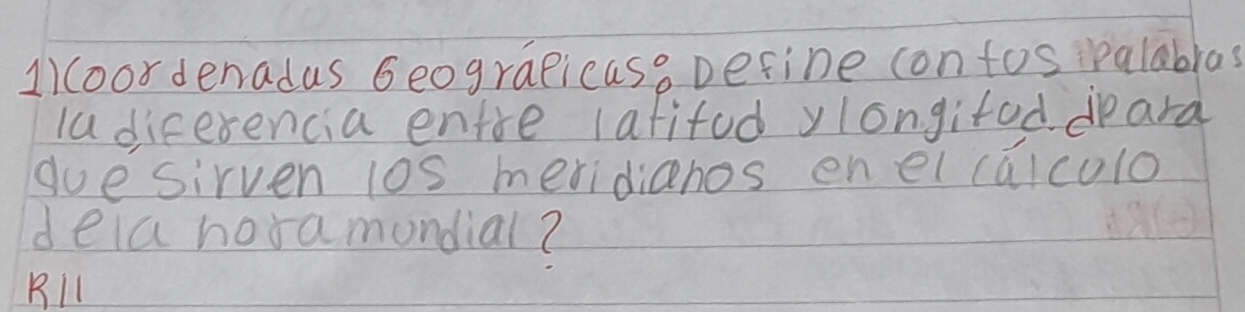 1) Coordenadas Geográficas: Define con tus palabras
la diferencia entre latitud y longitud. ¿Para
qué sirven los meridianos en el cálculo
de la hora mundial?
R//